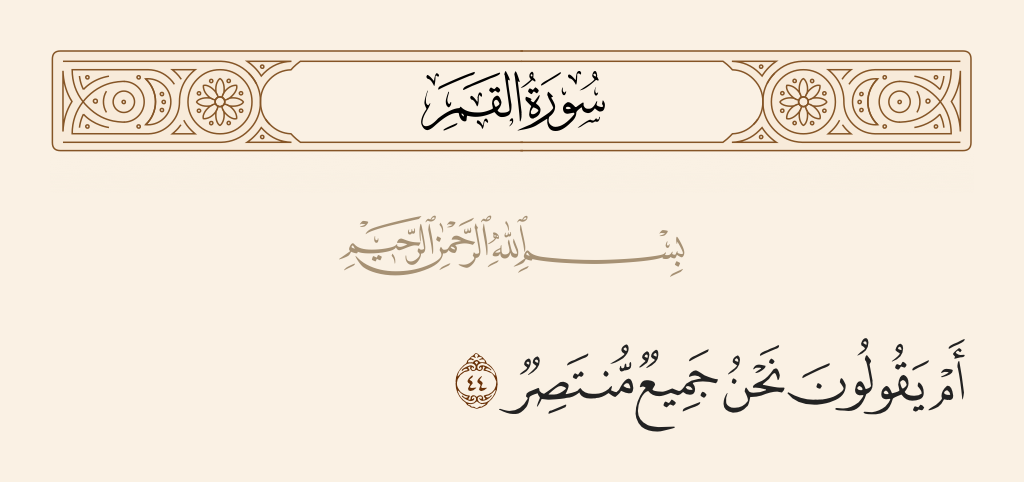 سُورَةُ القَمَرِ
بِسْمِ ٱللَّهِ ٱلرَّحْمَٰنِ ٱلرَّحِيمِ
أَمْ يَقُولُونَ نَحْنُ جَمِيعٌ مُّنتَصِرٌ ٤٤